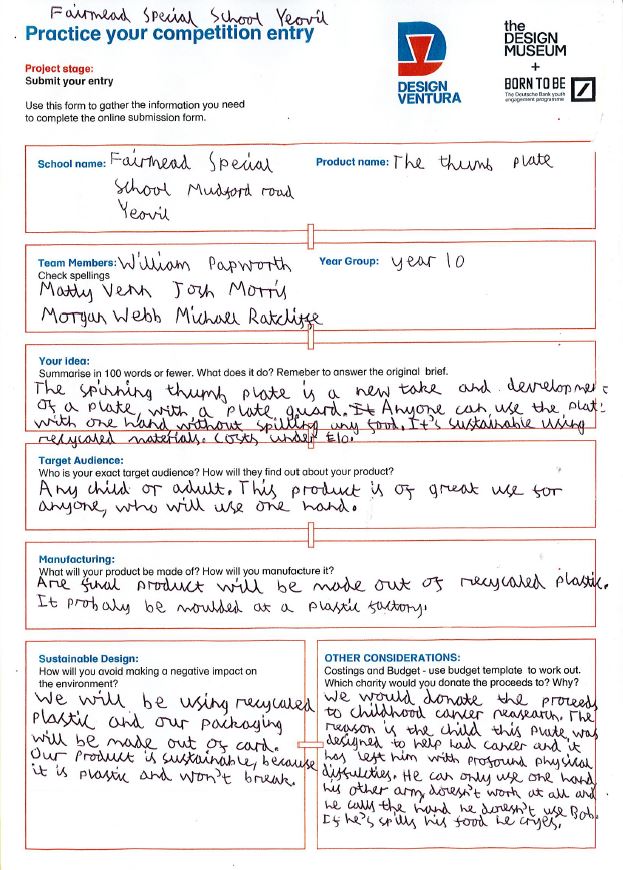 Fairmead Special School Yeovil
Practice your competition entry
Project stage:
Submit your entry
Use this form to gather the information you need
to complete the online submission form.
DESIGN
VENTURA
the
DESIGN
MUSEUM
+
BORN TO BE
The Deutsche Bank youth
engagement programme
School name: Fairmead Special
School Mudford road
Yeovil
Product name: The thumb plate
Team Members: William Papworth
Check spellings
Matty Venn Josh Morris
Morgan Webb Michael Ratcliffe
Year Group: year 10
Your idea:
Summarise in 100 words or fewer. What does it do? Remeber to answer the original brief.
The spinning thumb plate is a new take and development
of a plate, with a plate guard. It Anyone can use the plate
with one hand without spilling any food. It's sustainable using
recycaled materials. Costs under £10.
Target Audience:
Who is your exact target audience? How will they find out about your product?
Any child or adult. This product is of great use for
anyone, who will use one hand.
Manufacturing:
What will your product be made of? How will you manufacture it?
Are final product will be made out of recycaled plastic.
It probaly be moulded at a plastic factory.
Sustainable Design:
How will you avoid making a negative impact on
the environment?
We will be using recycaled
plastic and our packaging
will be made out of card.
Our product is sustainable, because
it is plastic and won't break.
OTHER CONSIDERATIONS:
Costings and Budget - use budget template to work out.
Which charity would you donate the proceeds to? Why?
We would donate the proceeds
to childhood cancer reasearch. The
reason is the child this plate was
designed to help had cancer and it
has left him with profound physical
difficulties. He can only use one hand
his other arm doesn't work at all and
he calls the hand he doesn't use Bob.
If he's spills his food he cryes.